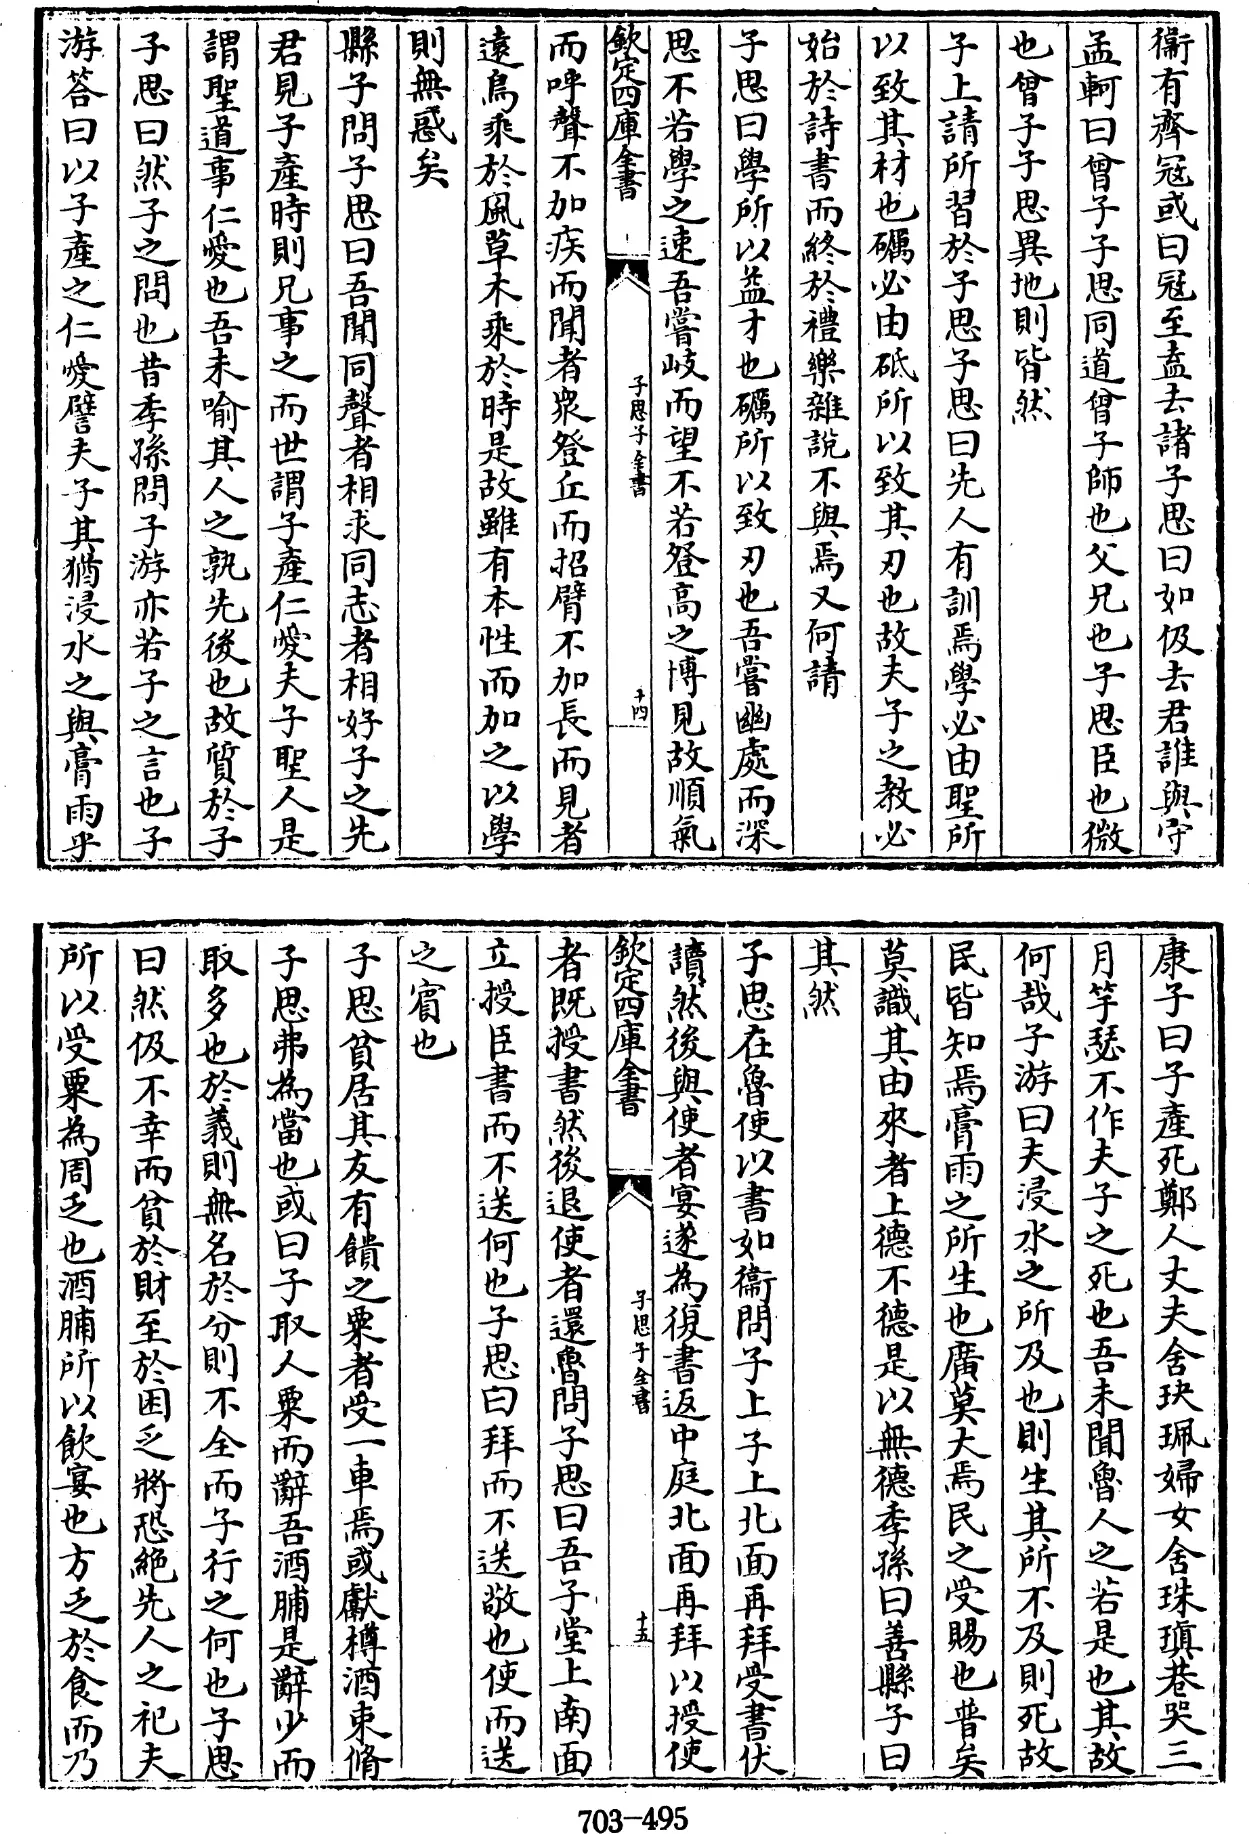 衞有齊寇或曰寇至盍去諸子思曰如伋去君誰與守
孟軻曰曾子子思同道曾子師也父兄也子思臣也微
也曾子子思異地則皆然
子上請所習於子思子思曰先人有訓焉學必由聖所
以致其材也礪必由砥所以致其刃也故夫子之教必
始於詩書而終於禮樂雜說不與焉又何請
子思曰學所以益才也礪所以致刃也吾嘗幽處而深
思不若學之速吾嘗岐而望不若登高之博見故順氣
欽定四庫全書 子思子全書 十四
而呼聲不加疾而聞者衆登丘而招臂不加長而見者
遠鳥乘於風草木乘於時是故雖有本性而加之以學
則無惑矣
縣子問子思曰吾聞同聲者相求同志者相好子之先
君見子產時則兄事之而世謂子產仁愛夫子聖人是
謂聖道事仁愛也吾未喻其人之孰先後也故質於子
子思曰然子之問也昔季孫問子游亦若子之言也子
游答曰以子產之仁愛譬夫子其猶浸水之與膏雨乎
康子曰子產死鄭人丈夫舍玦珮婦女舍珠瑱巷哭三
月竽瑟不作夫子之死也吾未聞魯人之若是也其故
何哉子游曰夫浸水之所及也則生其所不及則死故
民皆知焉膏雨之所生也廣莫大焉民之受賜也普矣
莫識其由來者上德不德是以無德季孫曰善縣子曰
其然
子思在魯使以書如衞問子上子上北面再拜受書伏
讀然後與使者宴遂為復書返中庭北面再拜以授使
欽定四庫全書 子思子全書 十五
者既授書然後退使者還魯問子思曰吾子堂上南面
立授臣書而不送何也子思曰拜而不送敬也使而送
之賓也
子思貧居其友有饋之粟者受一車焉或獻樽酒束脩
子思弗為當也或曰子取人粟而辭吾酒脯是辭少而
取多也於義則無名於分則不全而子行之何也子思
曰然伋不幸而貧於財至於困乏將恐絕先人之祀夫
所以受粟為周乏也酒脯所以飲宴也方乏於食而乃
703-495